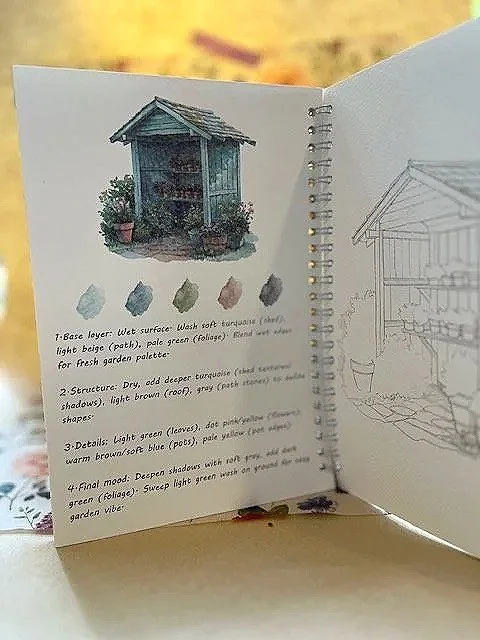 1·Base layer: Wet surface· Wash soft turquoise (shed),
light beige (path), pale green (foliage)· Blend wet edges
for fresh garden palette·
2·Structure: Dry, add deeper turquoise (shed textures/
shadows), light brown (roof), gray (path stones) to define
shapes·
3·Details: Light green (leaves), dot pink/yellow (flowers),
warm brown/soft blue (pots), pale yellow (pot edges)
4·Final mood: Deepen shadows with soft gray, add dark
green (foliage)· Sweep light green wash on ground for cozy
garden vibe·